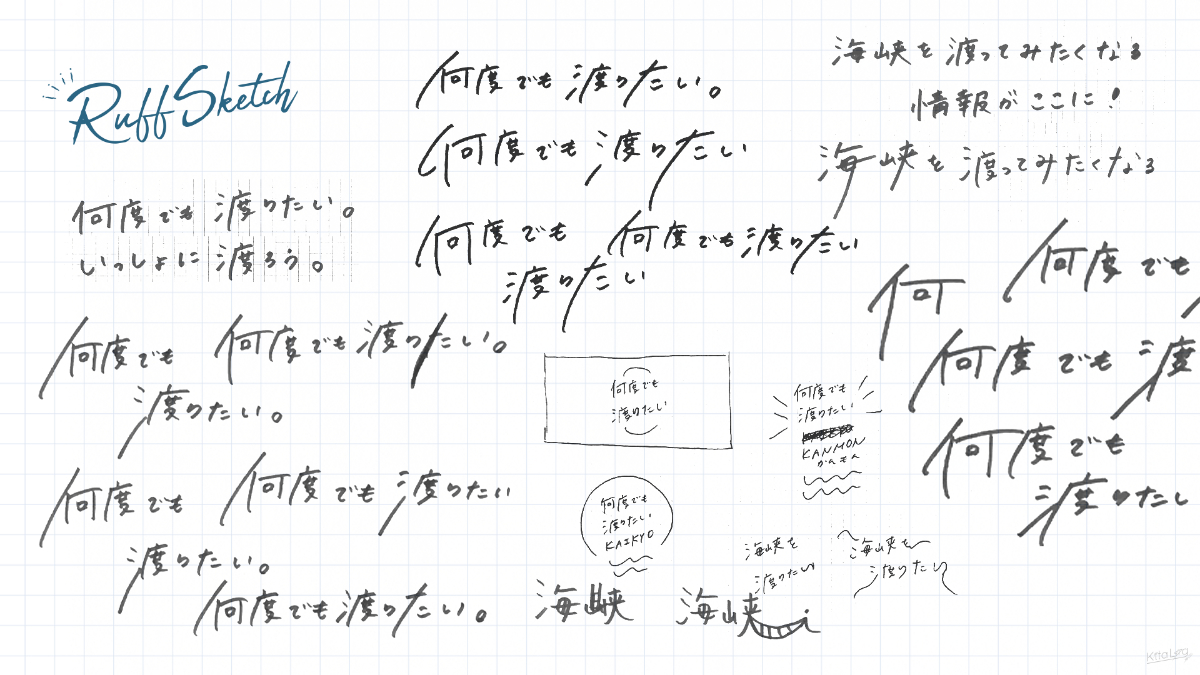 Ruff Sketch
何度でも渡りたい。
いっしょに渡ろう。
何度でも
渡りたい。
何度でも渡りたい。
何度でも
渡りたい。
何度でも渡りたい
何度でも渡りたい。
何度でも渡りたい。
何度でも渡りたい
何度でも
渡りたい
何度でも渡りたい
海峡を渡ってみたくなる
情報がここに!
海峡を渡ってみたくなる
何
何度でも
何度でも渡
何度でも
渡りたい
何度でも
渡りたい
何度でも
渡りたい
KANMON
かんもん
何度でも
渡りたい
KAIKYO
海峡を
渡りたい
海峡を
渡りたい
海峡
海峡
KitaLog